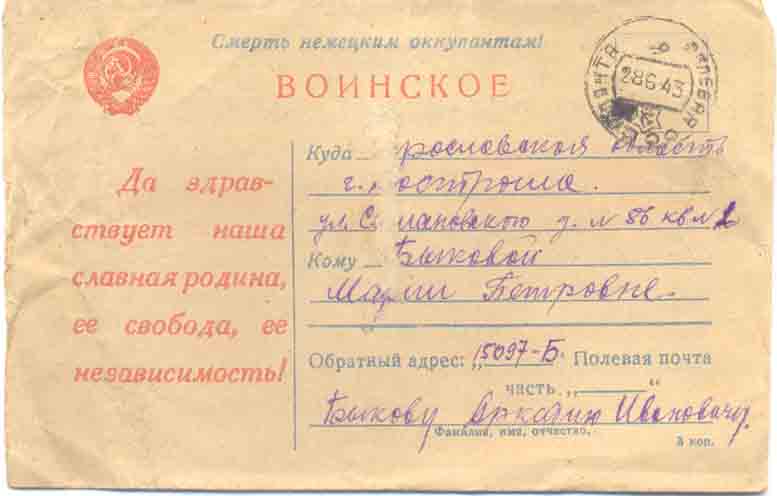 Смерть немецким оккупантам!
ВОИНСКОЕ
ПОЛЕВАЯ
28 6 43
Да здрав-
ствует наша
славная родина,
ее свобода, ее
независимость!
Куда рославская область
г. острома.
ул. д. № 86 кв №
Кому Быковой
Марии Петровне
Обратный адрес: „15097-Б“ Полевая почта
часть „ “
Быкову Аркадию Ивановичу.
Фамилия, имя, отчество.
3 коп.